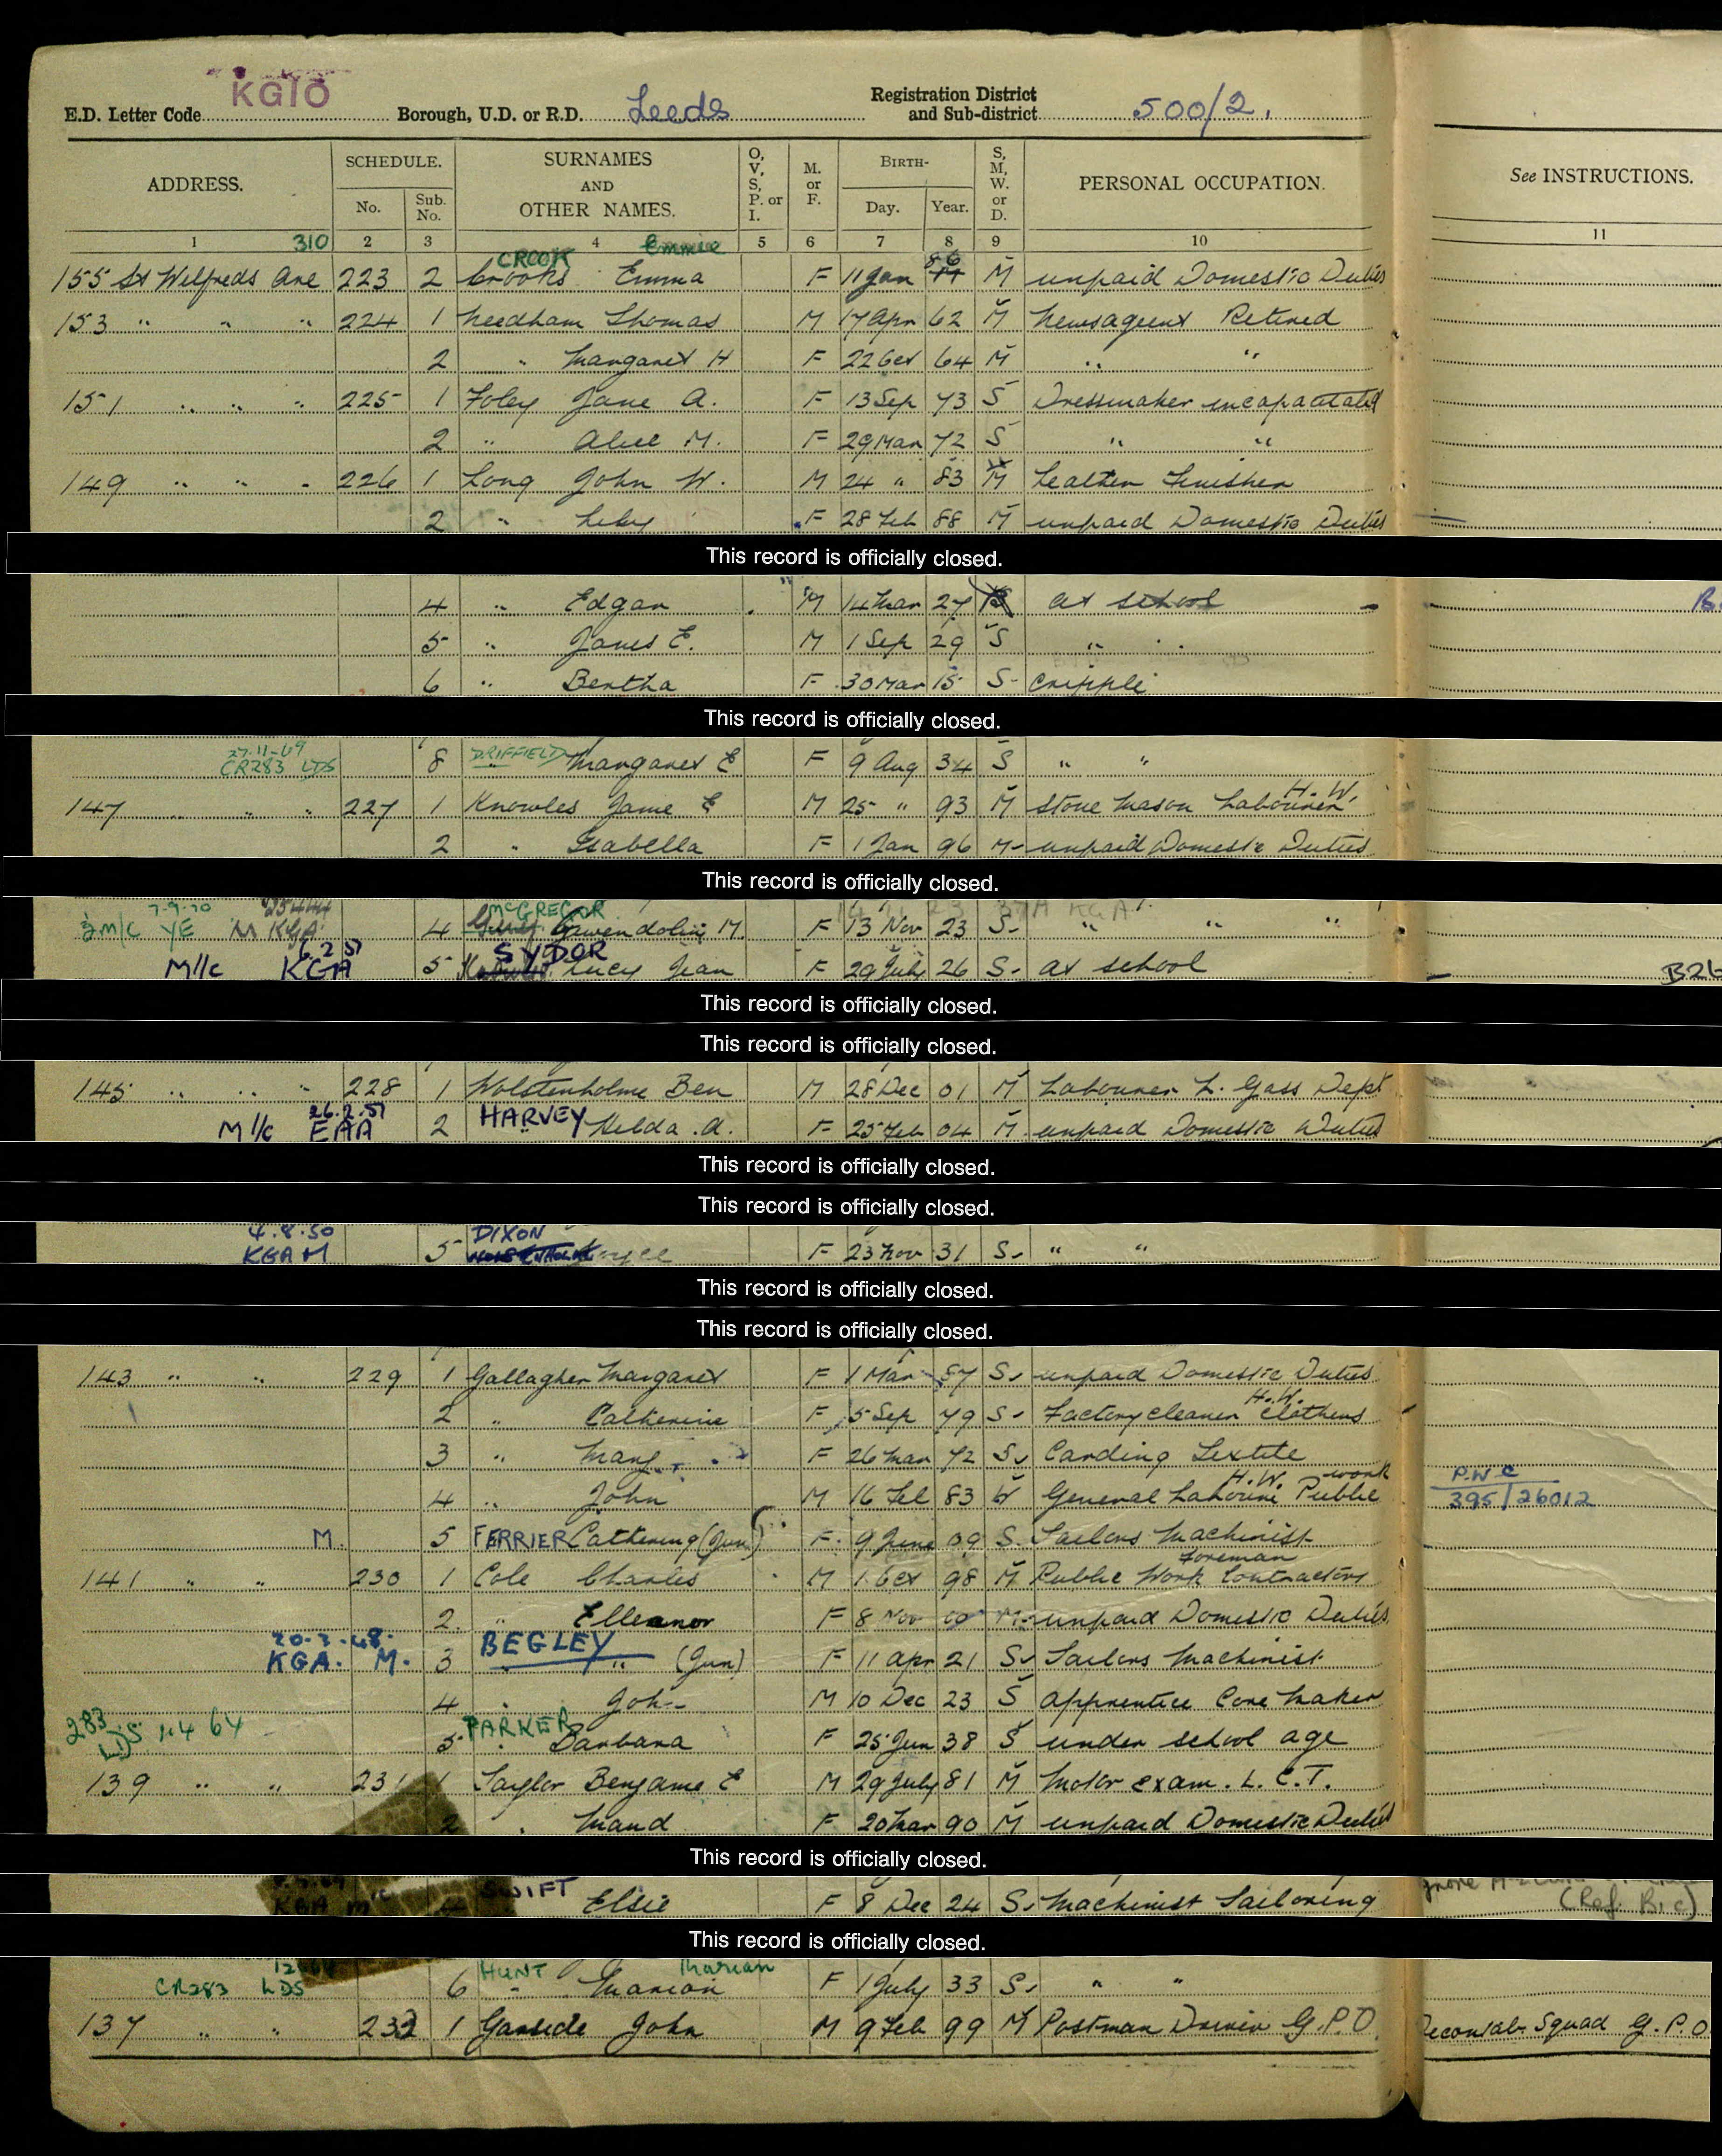 KGIO
E.D. Letter Code Borough, U.D. or R.D. Leeds Registration District and Sub-district 500/2.
ADDRESS. SCHEDULE. No. Sub. No. SURNAMES AND OTHER NAMES. O, V, S, P. or I. M. or F. BIRTH- Day. Year. S, M, W. or D. PERSONAL OCCUPATION. See INSTRUCTIONS.
1 310 2 3 4 Emmie 5 6 7 8 9 10 11
CROOK 86
155 St Wilfreds Ave 223 2 Crooks Emma F 11 Jan M unpaid Domestic Duties
153 " " " 224 1 Needham Thomas M 17 Apr 62 M Newsagent Retired
2 " Margaret H F 22 Oct 64 M " "
151 " " " 225 1 Foley Jane A. F 13 Sep 73 S Dressmaker incapacitated
2 " Alice M. F 29 Mar 72 S " "
149 " " " 226 1 Long John W. M 24 " 83 M Leather Finisher
2 " F 28 Feb 88 M unpaid Domestic Duties
This record is officially closed.
4 " Edgar M 14 Mar 27 at school
5 " James E. M 1 Sep 29 S " "
6 " Bertha F 30 Mar 15 S cripple
This record is officially closed.
27-11-69
CR283 LDS 8 DRIFFIELD Margaret E F 9 Aug 34 S " "
H.W.
147 " " 227 1 Knowles Jame E M 25 " 93 M Stone Mason Labourer
2 " Isabella F 1 Jan 96 M unpaid Domestic Duties
This record is officially closed.
7-9-70 MCGREGOR
M/C YE M KGA 4 Gwendoline M. F 13 Nov 23 S " " "
6.2.51 SYDOR
M//c KGA 5 Lucy Jean F 29 July 26 S at school
This record is officially closed.
This record is officially closed.
145 " " " 228 1 Wolstenholme Ben M 28 Dec 01 M Labourer L. Gass Dept
26.2.51
M//c EAA 2 HARVEY Hilda A. F 25 Feb 04 M unpaid Domestic Duties
This record is officially closed.
This record is officially closed.
4.8.50 DIXON
KGA M 5 F 23 Nov 31 S " "
This record is officially closed.
This record is officially closed.
143 " " 229 1 Gallagher Margaret F 1 Mar S unpaid Domestic Duties
H.W.
2 " Catherine F 5 Sep 79 S Factory cleaner Clothers
3 " Mary F 26 Mar 72 S Carding Textile
H.W. work
4 " John M 16 Feb 83 W General Labourer Public
P.W C
395/26012
M. 5 FERRIER Catherine (Jun) F 9 June 09 S Tailors Machinist
Foreman
141 " " 230 1 Cole Charles M 1 Oct 98 M Public Work Contractors
2 " Elleanor F 8 Nov M unpaid Domestic Duties
20-3-48. BEGLEY
KGA. M. 3 " (Jun) F 11 Apr 21 S Tailors Machinist
4 " John M 10 Dec 23 S apprentice Core Maker
283 LDS 1.4 64 PARKER
5 " Barbara F 25 Jun 38 S under school age
139 " " 231 1 Taylor Benjame E M 29 July 81 M Motor exam. L.C.T.
2 " Maud F 20 Mar 90 M unpaid Domestic Duties
This record is officially closed.
SWIFT
KGA M/c 4 Elsie F 8 Dec 24 S Machinist Tailoring (Ref. B,c)
This record is officially closed.
HUNT Marian
CR283 LDS 6 " Marion F 1 July 33 S " "
137 " " 232 1 Garside John M 9 Feb 99 M Postman Driver G.P.O. Decontab. Squad G.P.O